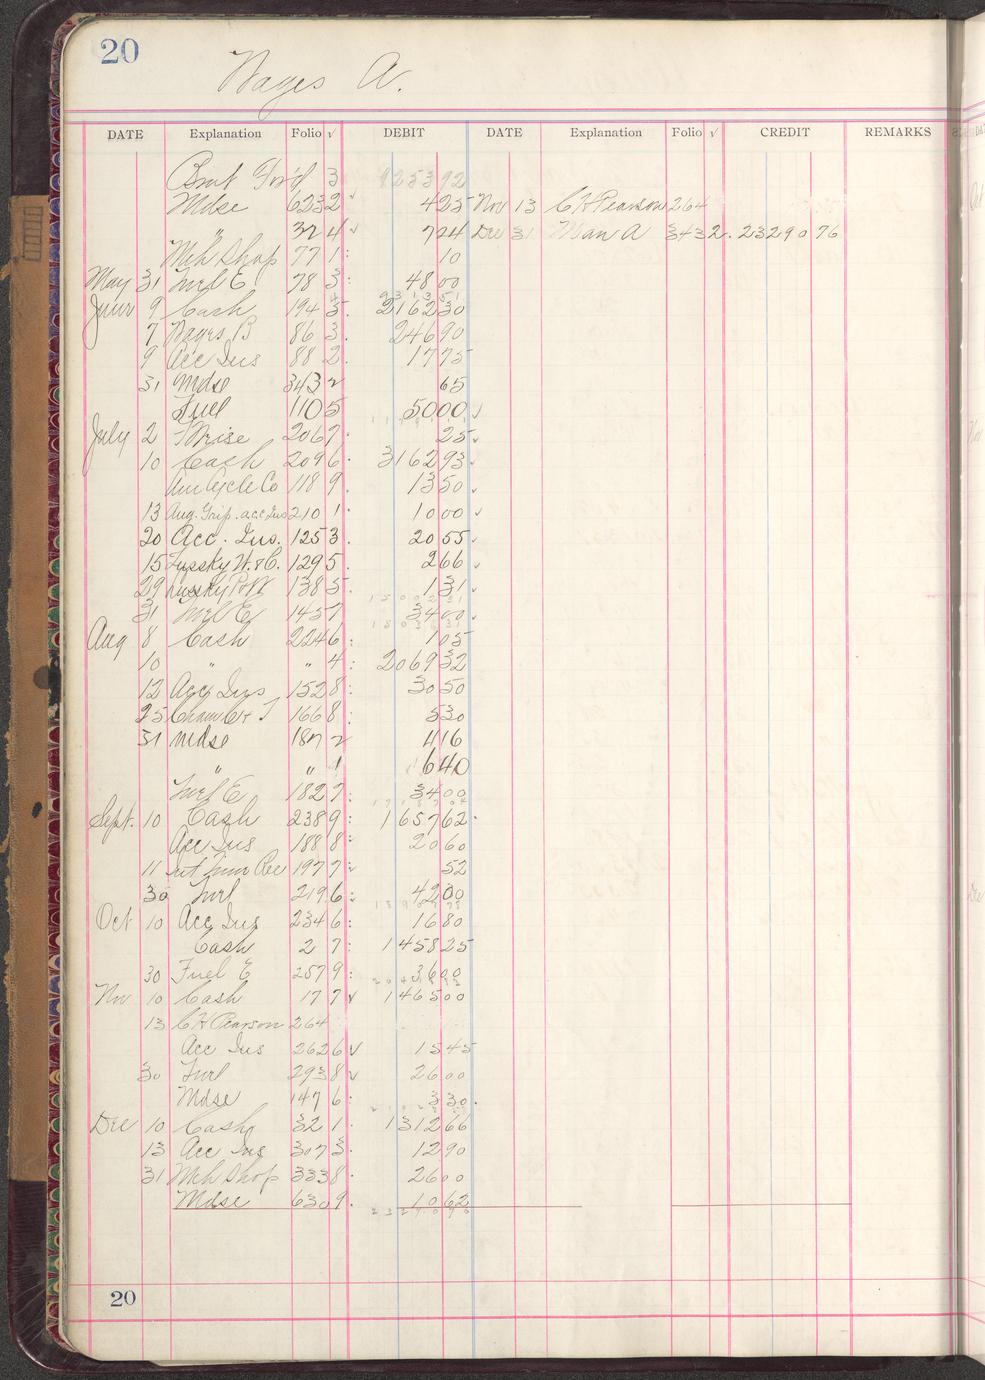 20
Wages A.
DATE Explanation Folio √ DEBIT DATE Explanation Folio √ CREDIT REMARKS
Brot For'd 3 9253 92
Mdse 623 2 √ 4 25 Nov 13 C H Pearson 264
" 32 4 √ 7 24 Dec 31 Man A 343 2. 23290 76
Mch Shop 77 1: 10
May 31 Fuel E 78 3: 48 00
June 9 Cash 194 5. 2162 30
7 Wages B 86 3. 246 90
9 Acc Ins 88 2. 17 75
31 Mdse 343 2 65
Fuel 110 5 50 00 √
July 2 206 7. 25 √
10 Cash 209 6. 3162 93 √
Am Cycle Co 118 9. 13 50 √
13 Aug. Grip. acc Ins 210 1. 10 00 √
20 Acc. Ins. 125 3. 20 55 √
15 Lussky W. & C. 129 5. 2 66 √
29 Lussky P & W 138 5. 1 31 √
31 Fuel E 145 7 34 00 √
Aug 8 Cash 224 6: 1 05
10 " " 4: 2069 32
12 Acc Ins 152 8: 30 50
25 Cham C & T 166 8. 5 30
31 Mdse 187 2 4 16
" " 1 6 40
Fuel E 182 7: 34 00
Sept. 10 Cash 238 9: 1657 62.
Acc Ins 188 8: 20 60
11 197 7: 52
30 Fuel 219 6: 42 00
Oct 10 Acc Ins 234 6: 16 80
Cash 2 7: 1458 25
30 Fuel E 257 9: 36 00
Nov 10 Cash 17 7 √ 1465 00
13 C H Pearson 264
Acc Ins 262 6 √ 15 45
30 Fuel 293 8 √ 26 00
Mdse 147 6: 3 30.
Dec 10 Cash 32 1. 1312 66
13 Acc Ins 307 3. 12 90
31 Mch Shop 333 8. 26 00
Mdse 630 9. 10 62
20